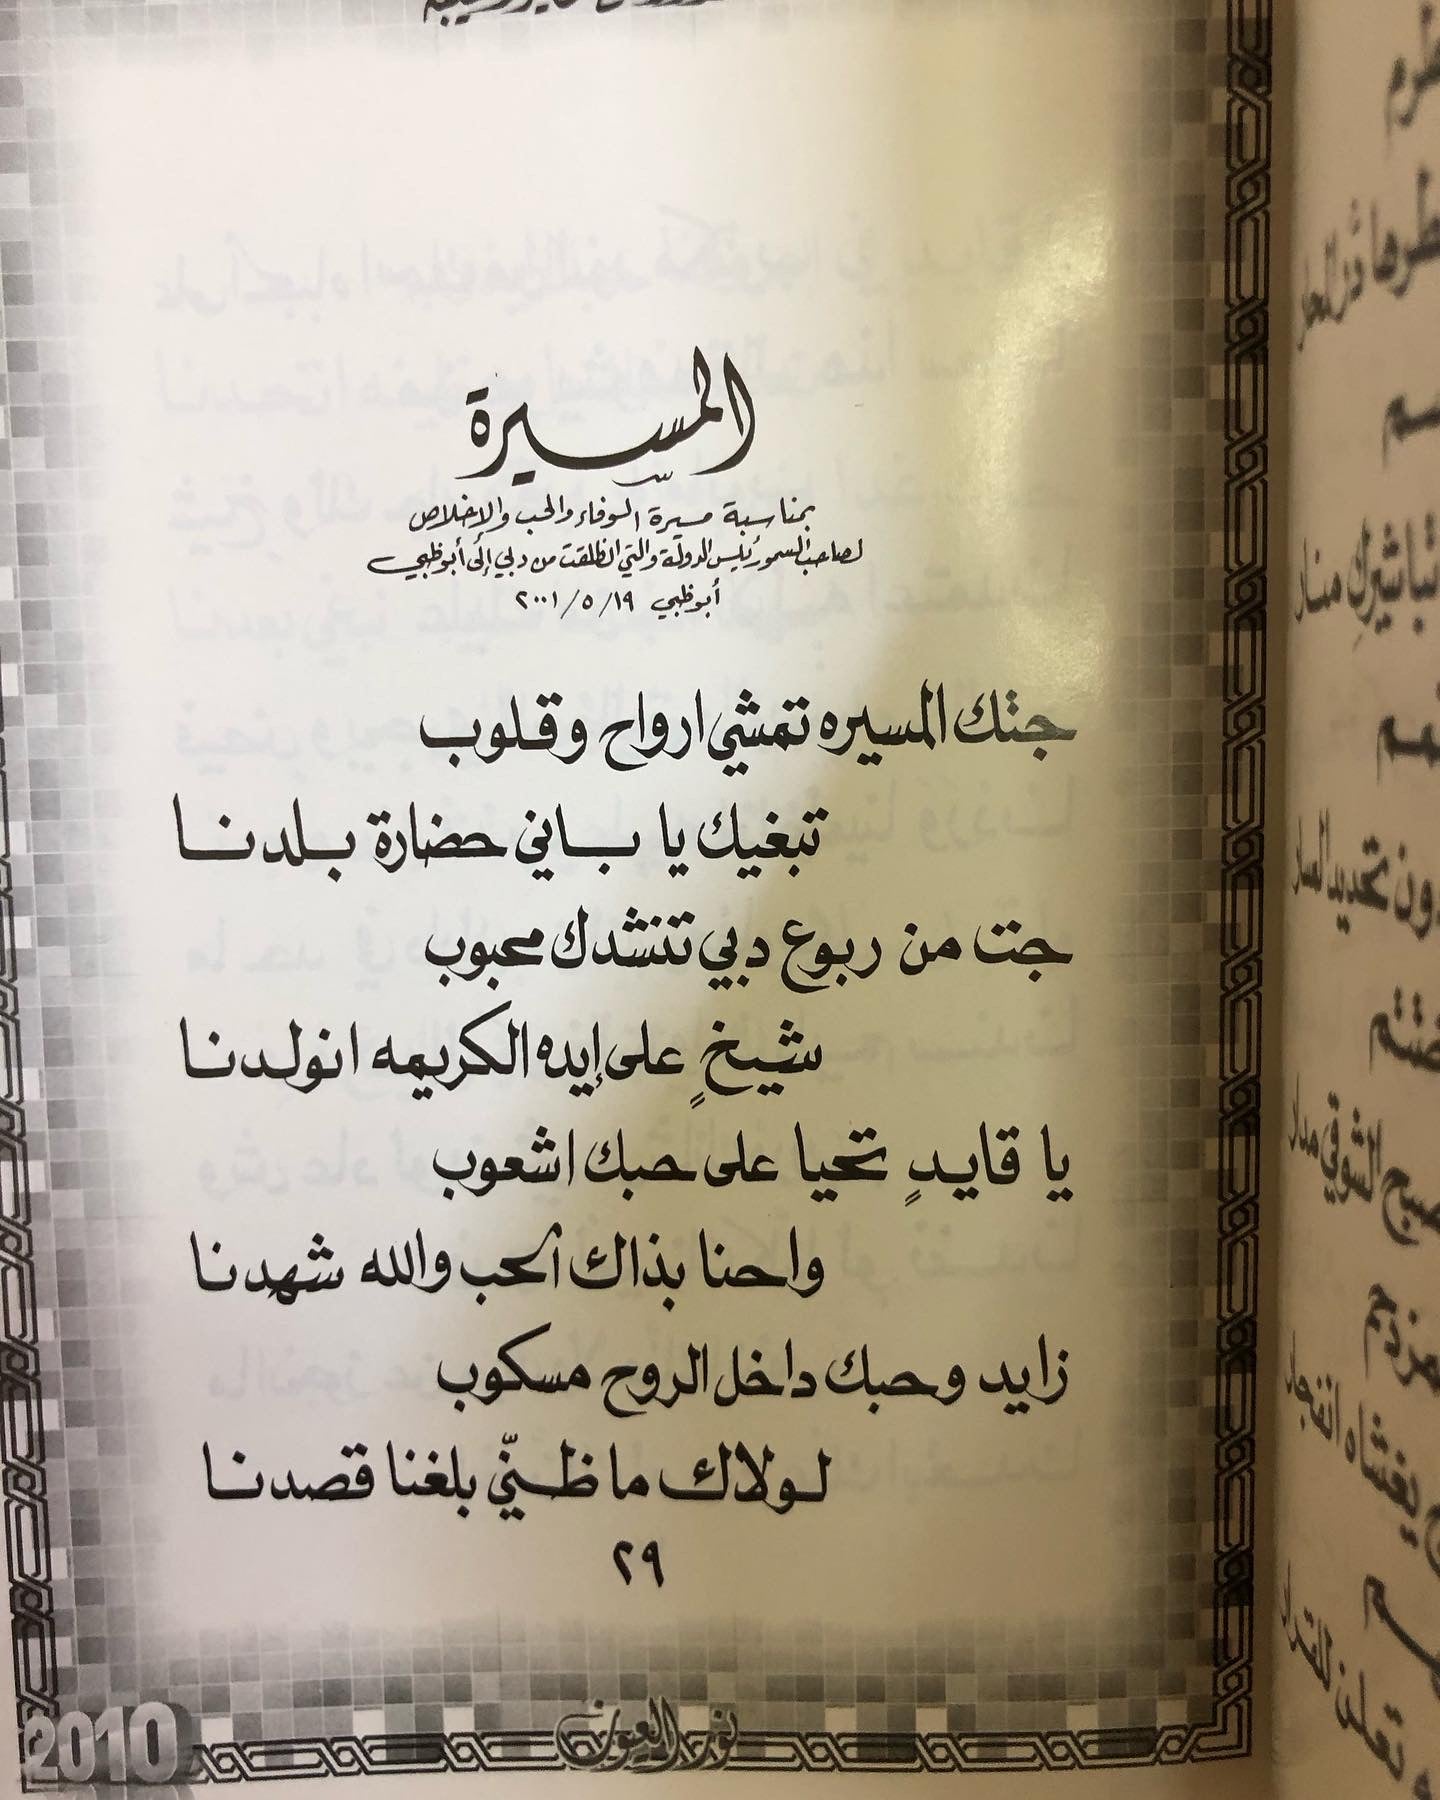 المسيرة
بمناسبة مسيرة الوفاء والحب والاخلاص
لصاحب السمو رئيس الدولة والتي انطلقت من دبي إلى أبوظبي
أبوظبي ١٩/ ٥/ ٢٠٠١
جتك المسيره تمشي ارواح وقلوب
تبغيك يا باني حضارة بلدنا
جت من ربوع دبي تنشدك محبوب
شيخٍ على إيده الكريمه انولدنا
يا قايدٍ تحيا على حبك اشعوب
واحنا بذاك الحب والله شهدنا
زايد وحبك داخل الروح مسكوب
لولاك ما ظنيّ بلغنا قصدنا
٢٩
نور العيون
2010